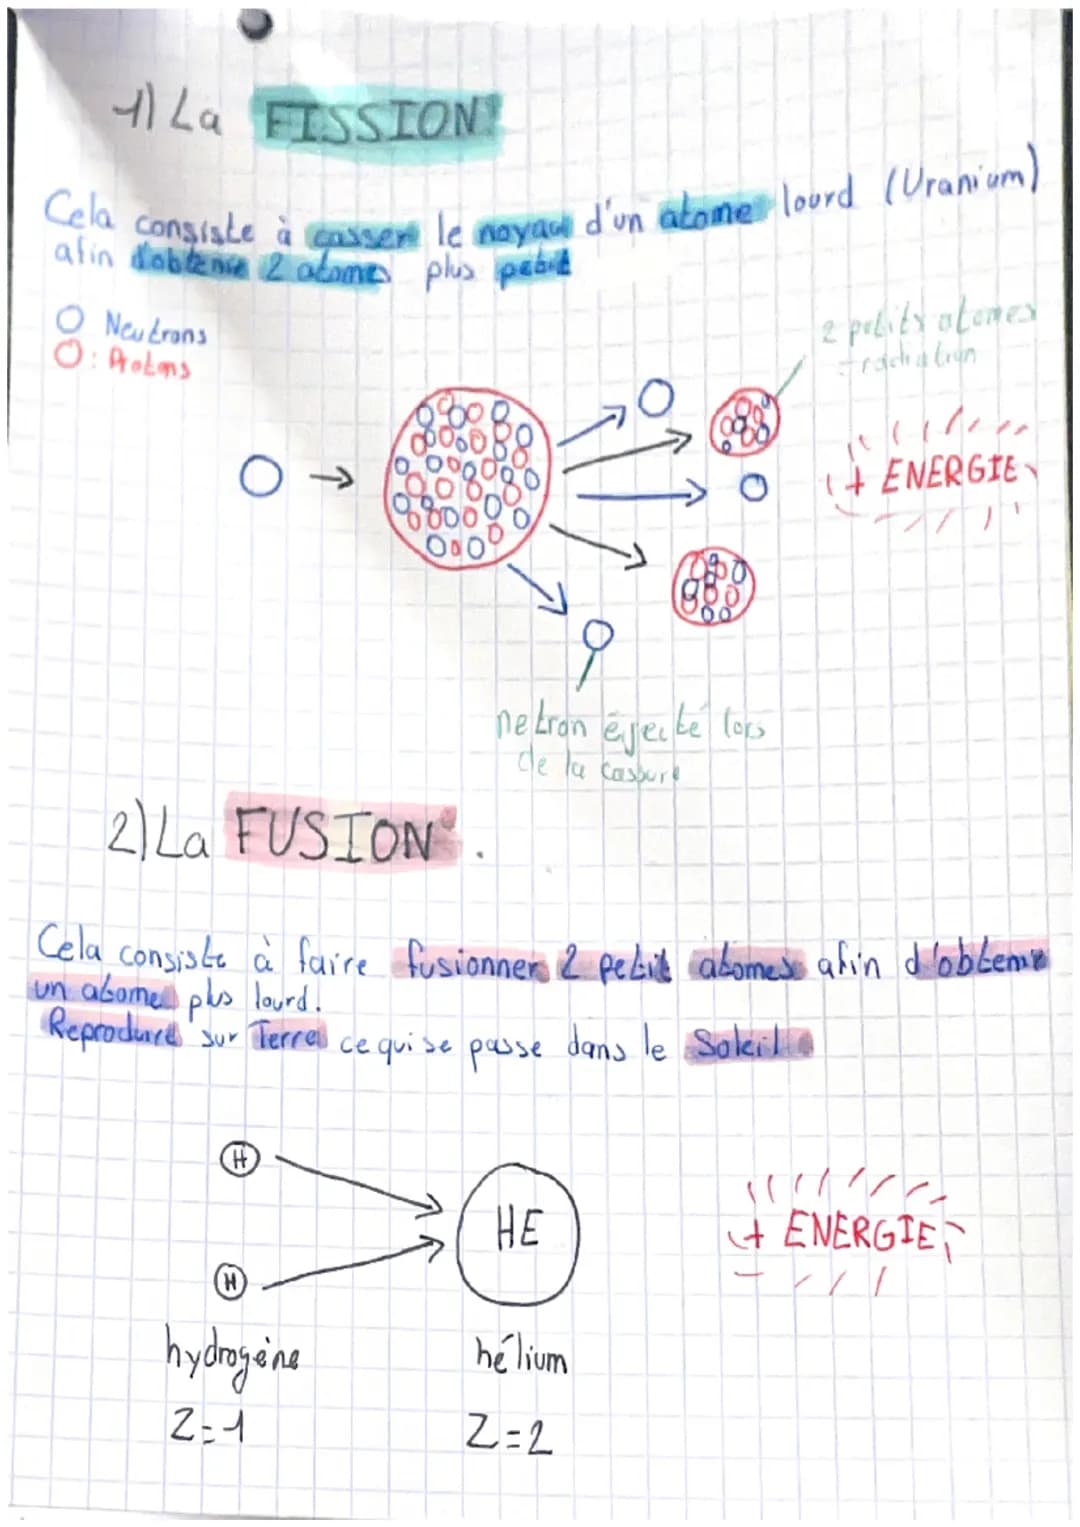 1) La FISSION
Cela consiste à casser le noyau d'un atome lourd (Uranium)
afin d'obtenir 2 atomes plus petit
O Neutrons
O: Protons
2 petits atomes
- radiation
+ ENERGIE
netron éjecté lors
de la cassure
2) La FUSION.
Cela consiste à faire fusionner 2 petit atomes afin d'obtenir
un atome plus lourd.
Reproduire sur Terre ce qui se passe dans le Soleil
H
HE
+ ENERGIE
H
hydrogène
hélium
Z=1
Z=2